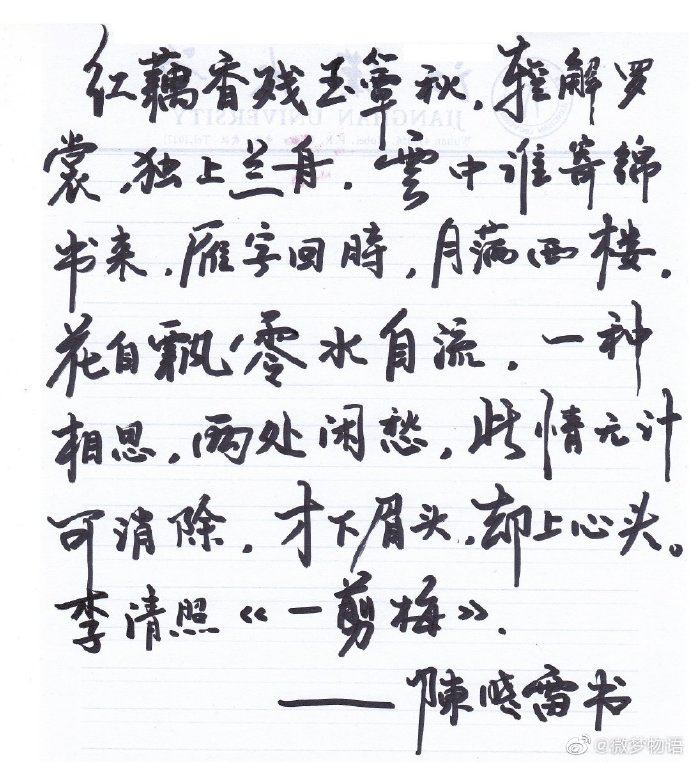 红藕香残玉簟秋,轻解罗
裳,独上兰舟,雲中谁寄绵
书来,雁字回時,月满西楼,
花自飘零水自流,一种
相思,两处闲愁,此情无计
可消除,才下眉头,却上心头。
李清照《一剪梅》.
——陳晓雷书
JIANGHAN UNIVERSITY
@微梦物语